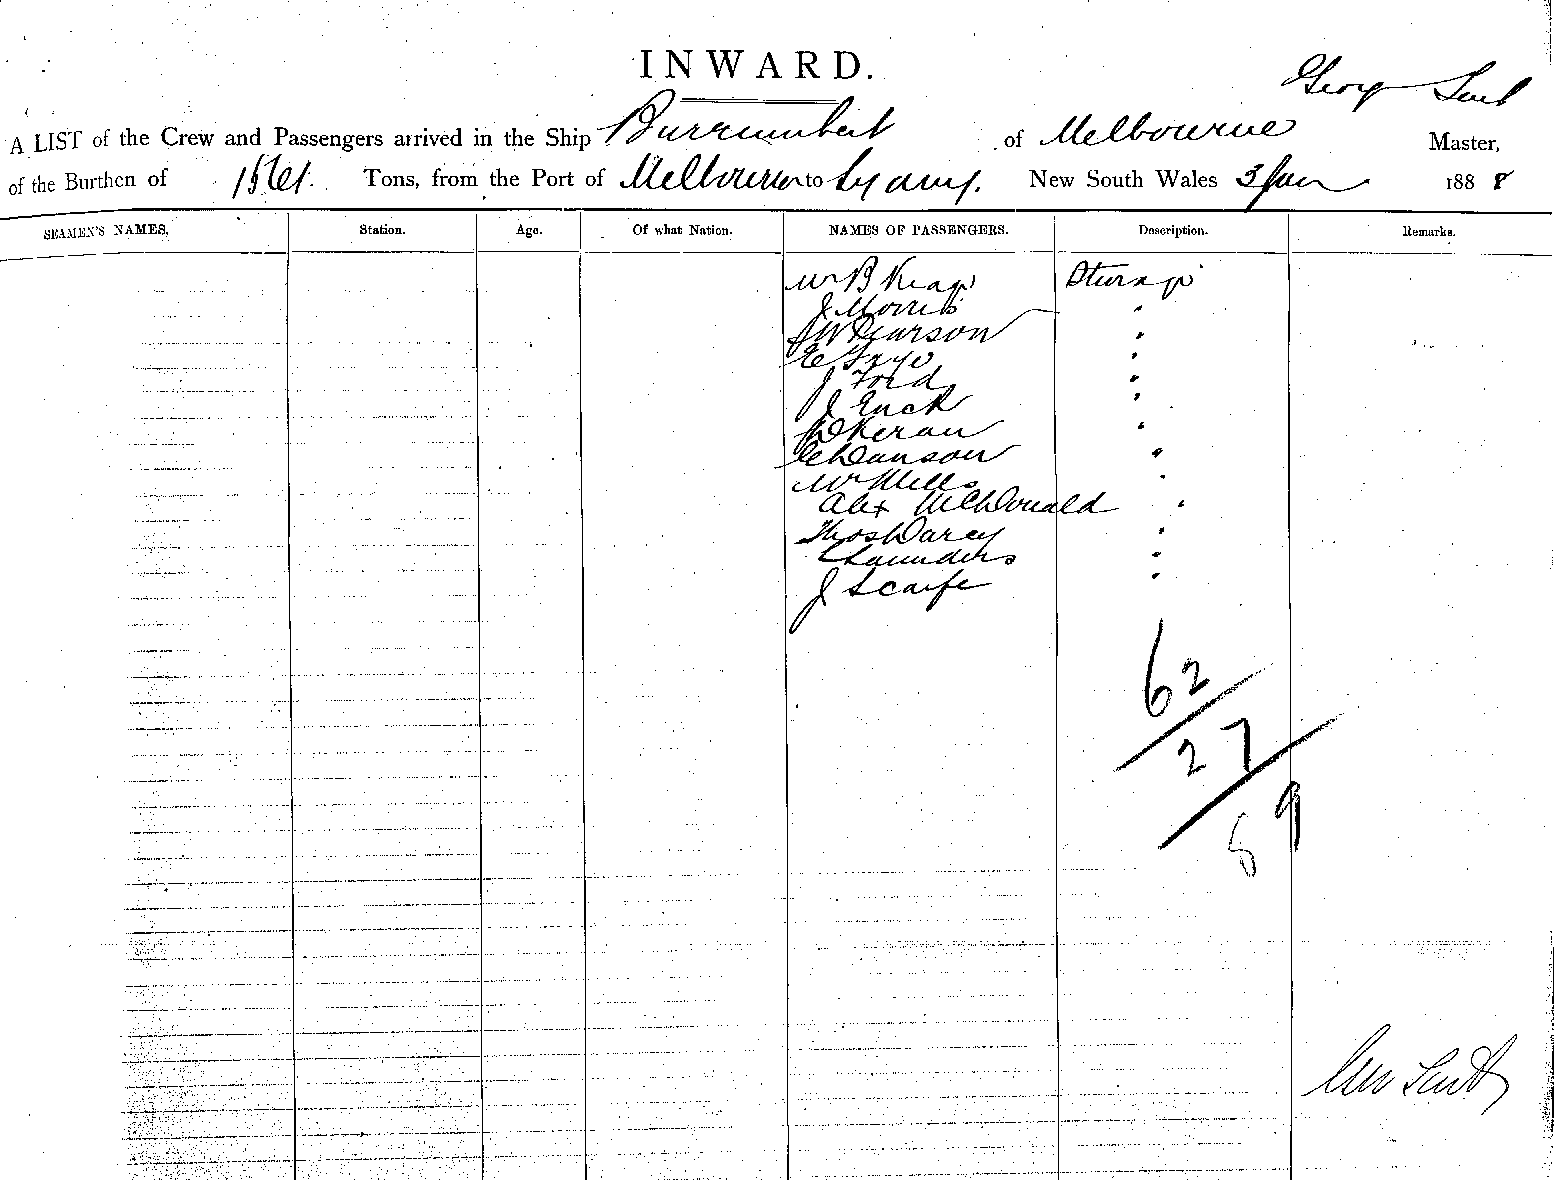 INWARD.
A LIST of the Crew and Passengers arrived in the Ship Burrumbeet of Melbourne Master,
of the Burthen of Tons, from the Port of Melbourne to Sydney. New South Wales 3 Jan 1888
SEAMEN'S NAMES. Station. Age. Of what Nation. NAMES OF PASSENGERS. Description. Remarks.
Mr B
J Morris
W Pearson
E
J Ford
J
Keran
Dawson
Mr Mills
Alex McDonald
Thos Darcy
Saunders
J Scarfe
62
27
89